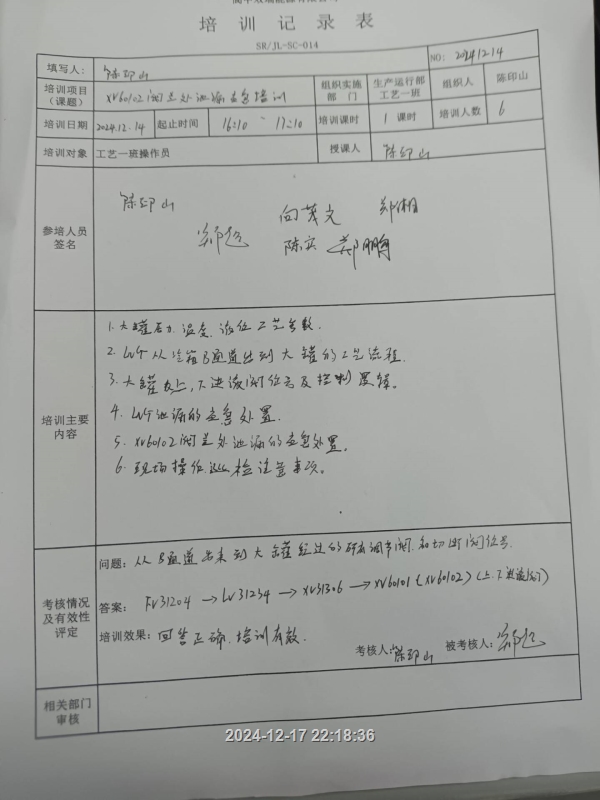 培训记录表
SR/JL-SC-014
NO: 2024.12.14
填写人: 陈印山
培训项目(课题) XV60102阀兰处泄漏应急培训 组织实施部门 生产运行部工艺一班 组织人 陈印山
培训日期 2024.12.14 起止时间 16:10 ~ 17:10 培训课时 1 课时 培训人数 6
培训对象 工艺一班操作员 授课人 陈印山
参培人员签名
陈印山 向茂文 郑湘
郑超 陈实 郑鹏
培训主要内容
1. 大罐压力.温度.液位工艺参数.
2. LNG从冷箱B通道出到大罐的工艺流程.
3. 大罐上,下进液阀位号及控制逻辑。
4. LNG泄漏的应急处置.
5. XV60102阀兰处泄漏的应急处置。
6. 现场操作巡检注意事项。
考核情况及有效性评定
问题: 从B通道出来到大罐经过的所有调节阀.和切断阀位号.
答案: FV31204 → LV31234 → XV31306 → XV60101 (XV60102) (上.下进液阀)
培训效果: 回答正确.培训有效.
考核人: 陈印山 被考核人: 郑超
相关部门审核
2024-12-17 22:18:36